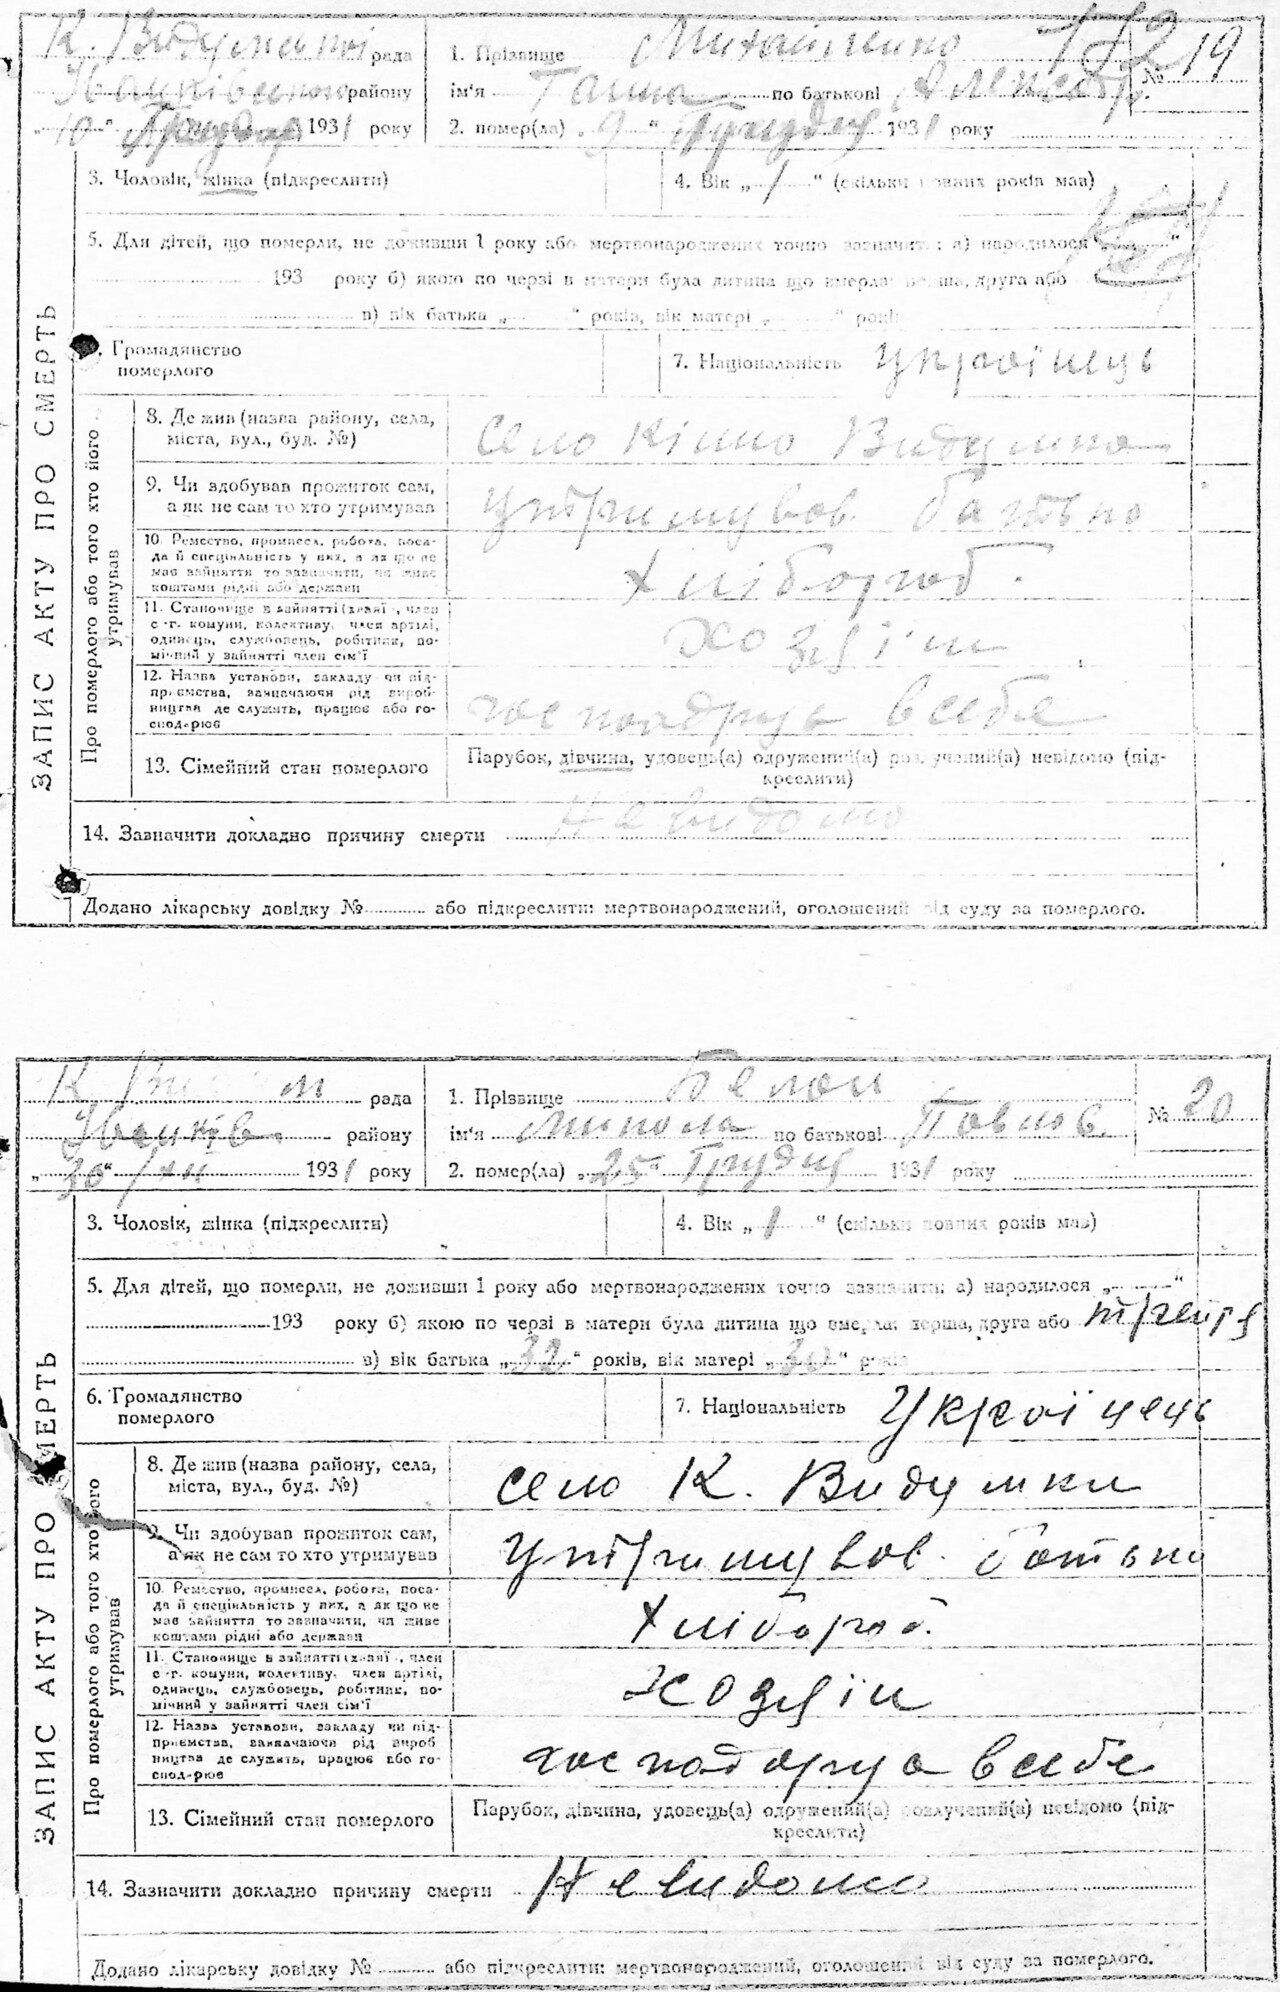 К. Видумськ рада 1. Прізвище Михайленко № 19
Іванківського району ім'я Ганна по батькові Алексадр.
„10“ Грудня 1931 року 2. помер(ла) „9“ Грудня 1931 року
3. Чоловік, жінка (підкреслити) 4. Вік „1“ (скільки повних років мав)
5. Для дітей, що померли, не доживши 1 року або мертвонароджених точно зазначити: а) народилося „ “
193 року б) якою по черзі в матери була дитина що вмерла: перша, друга або
в) вік батька „ “ років, вік матері „ “ років
ЗАПИС АКТУ ПРО СМЕРТЬ
6. Громадянство
померлого
7. Національність Українець
Про померлого або того хто його
утримував
8. Де жив (назва району, села,
міста, вул., буд. №)
село Кінно Видумка
9. Чи здобував прожиток сам,
а як не сам то хто утримував
утримував батько
10. Ремество, промисел, робота, поса-
да й спеціяльність у них, а як що не
має зайняття то зазначити, чи живе
коштами рідні або держави
Хлібороб.
11. Становище в зайнятті (хазяї , член
с.-г. комуни, колективу, член артілі,
одинець, службовець, робітник, по-
мічний у зайнятті член сім'ї
хозяін
12. Назва установи, закладу чи під-
приємства, зазначаючи рід вироб-
ництва де служить, працює або го-
сподарює
господарує в себе
13. Сімейний стан померлого
Парубок, дівчина, удовець(а) одружений(а) розлучений(а) невідомо (під-
креслити)
14. Зазначити докладно причину смерти Невидомо
Додано лікарську довідку № або підкреслити: мертвонароджений, оголошений від суду за померлого.
К. рада 1. Прізвище Белой № 20
Іванків. району ім'я Микола по батькові Павлов.
„30“ /XII 1931 року 2. помер(ла) „25“ Грудня 1931 року
3. Чоловік, жінка (підкреслити) 4. Вік „1“ (скільки повних років мав)
5. Для дітей, що померли, не доживши 1 року або мертвонароджених точно зазначити: а) народилося „ “
193 року б) якою по черзі в матери була дитина що вмерла: перша, друга або третя
в) вік батька „32“ років, вік матері „30“ років
ЗАПИС АКТУ ПРО СМЕРТЬ
6. Громадянство
померлого
7. Національність Українець
Про померлого або того хто його
утримував
8. Де жив (назва району, села,
міста, вул., буд. №)
село К. Видумки
9. Чи здобував прожиток сам,
а як не сам то хто утримував
утримував батько
10. Ремество, промисел, робота, поса-
да й спеціяльність у них, а як що не
має зайняття то зазначити, чи живе
коштами рідні або держави
Хлібороб.
11. Становище в зайнятті (хазяї , член
с.-г. комуни, колективу, член артілі,
одинець, службовець, робітник, по-
мічний у зайнятті член сім'ї
хозяін
12. Назва установи, закладу чи під-
приємства, зазначаючи рід вироб
ництва де служить, працює або го-
сподарює
господарує в себе
13. Сімейний стан померлого
Парубок, дівчина, удовець(а) одружений(а) розлучений(а) невідомо (під-
креслити)
14. Зазначити докладно причину смерти Невидомо
Додано лікарську довідку № або підкреслити: мертвонароджений, оголошений від суду за померлого.